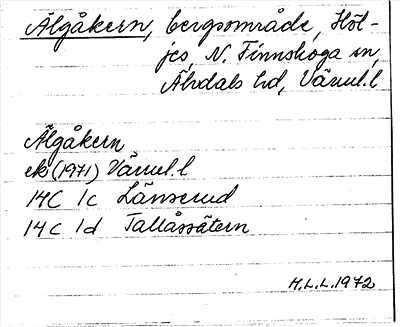 Älgåkern, bergsområde, Höl-
jes, N. Finnskoga sn,
Älvdals hd, Värml. l
Älgåkern
ek (1971) Värml. l
14C 1c Länserud
14C 1d Tallåssätern
H.L.L. 1972